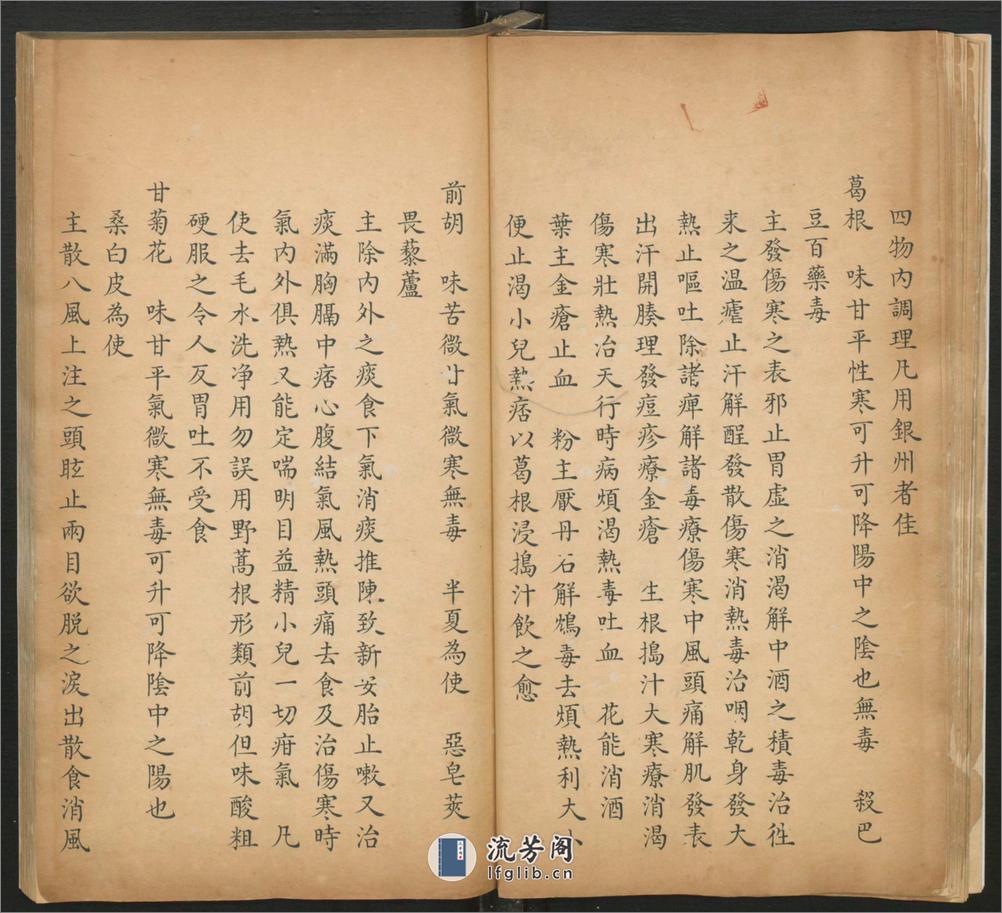 四物內調理凡用銀州者佳
葛根　味甘平性寒可升可降陽中之陰也無毒　殺巴
豆百藥毒
主發傷寒之表邪止胃虛之消渴解中酒之積毒治徃
來之温瘧止汗解酲發散傷寒消熱毒治咽乾身發大
熱止嘔吐除諸痺解諸毒療傷寒中風頭痛解肌發表
出汗開腠理發痘疹療金瘡　生根搗汁大寒療消渴
傷寒壯熱治天行時病煩渴熱毒吐血　花能消酒
葉主金瘡止血　粉主厭丹石解鴆毒去煩熱利大小
便止渴小兒熱痞以葛根浸搗汁飲之愈
前胡　味苦微甘氣微寒無毒　半夏為使　惡皂莢
畏藜蘆
主除內外之痰食下氣消痰推陳致新安胎止嗽又治
痰滿胸膈中痞心腹結氣風熱頭痛去食及治傷寒時
氣內外俱熱又能定喘明目益精小兒一切疳氣　凡
使去毛水洗净用勿誤用野蒿根形類前胡但味酸粗
硬服之令人反胃吐不受食
甘菊花　味甘平氣微寒無毒可升可降陰中之陽也
桑白皮為使
主散八風上注之頭眩止兩目欲脫之淚出散食消風
流芳阁
lfglib.cn